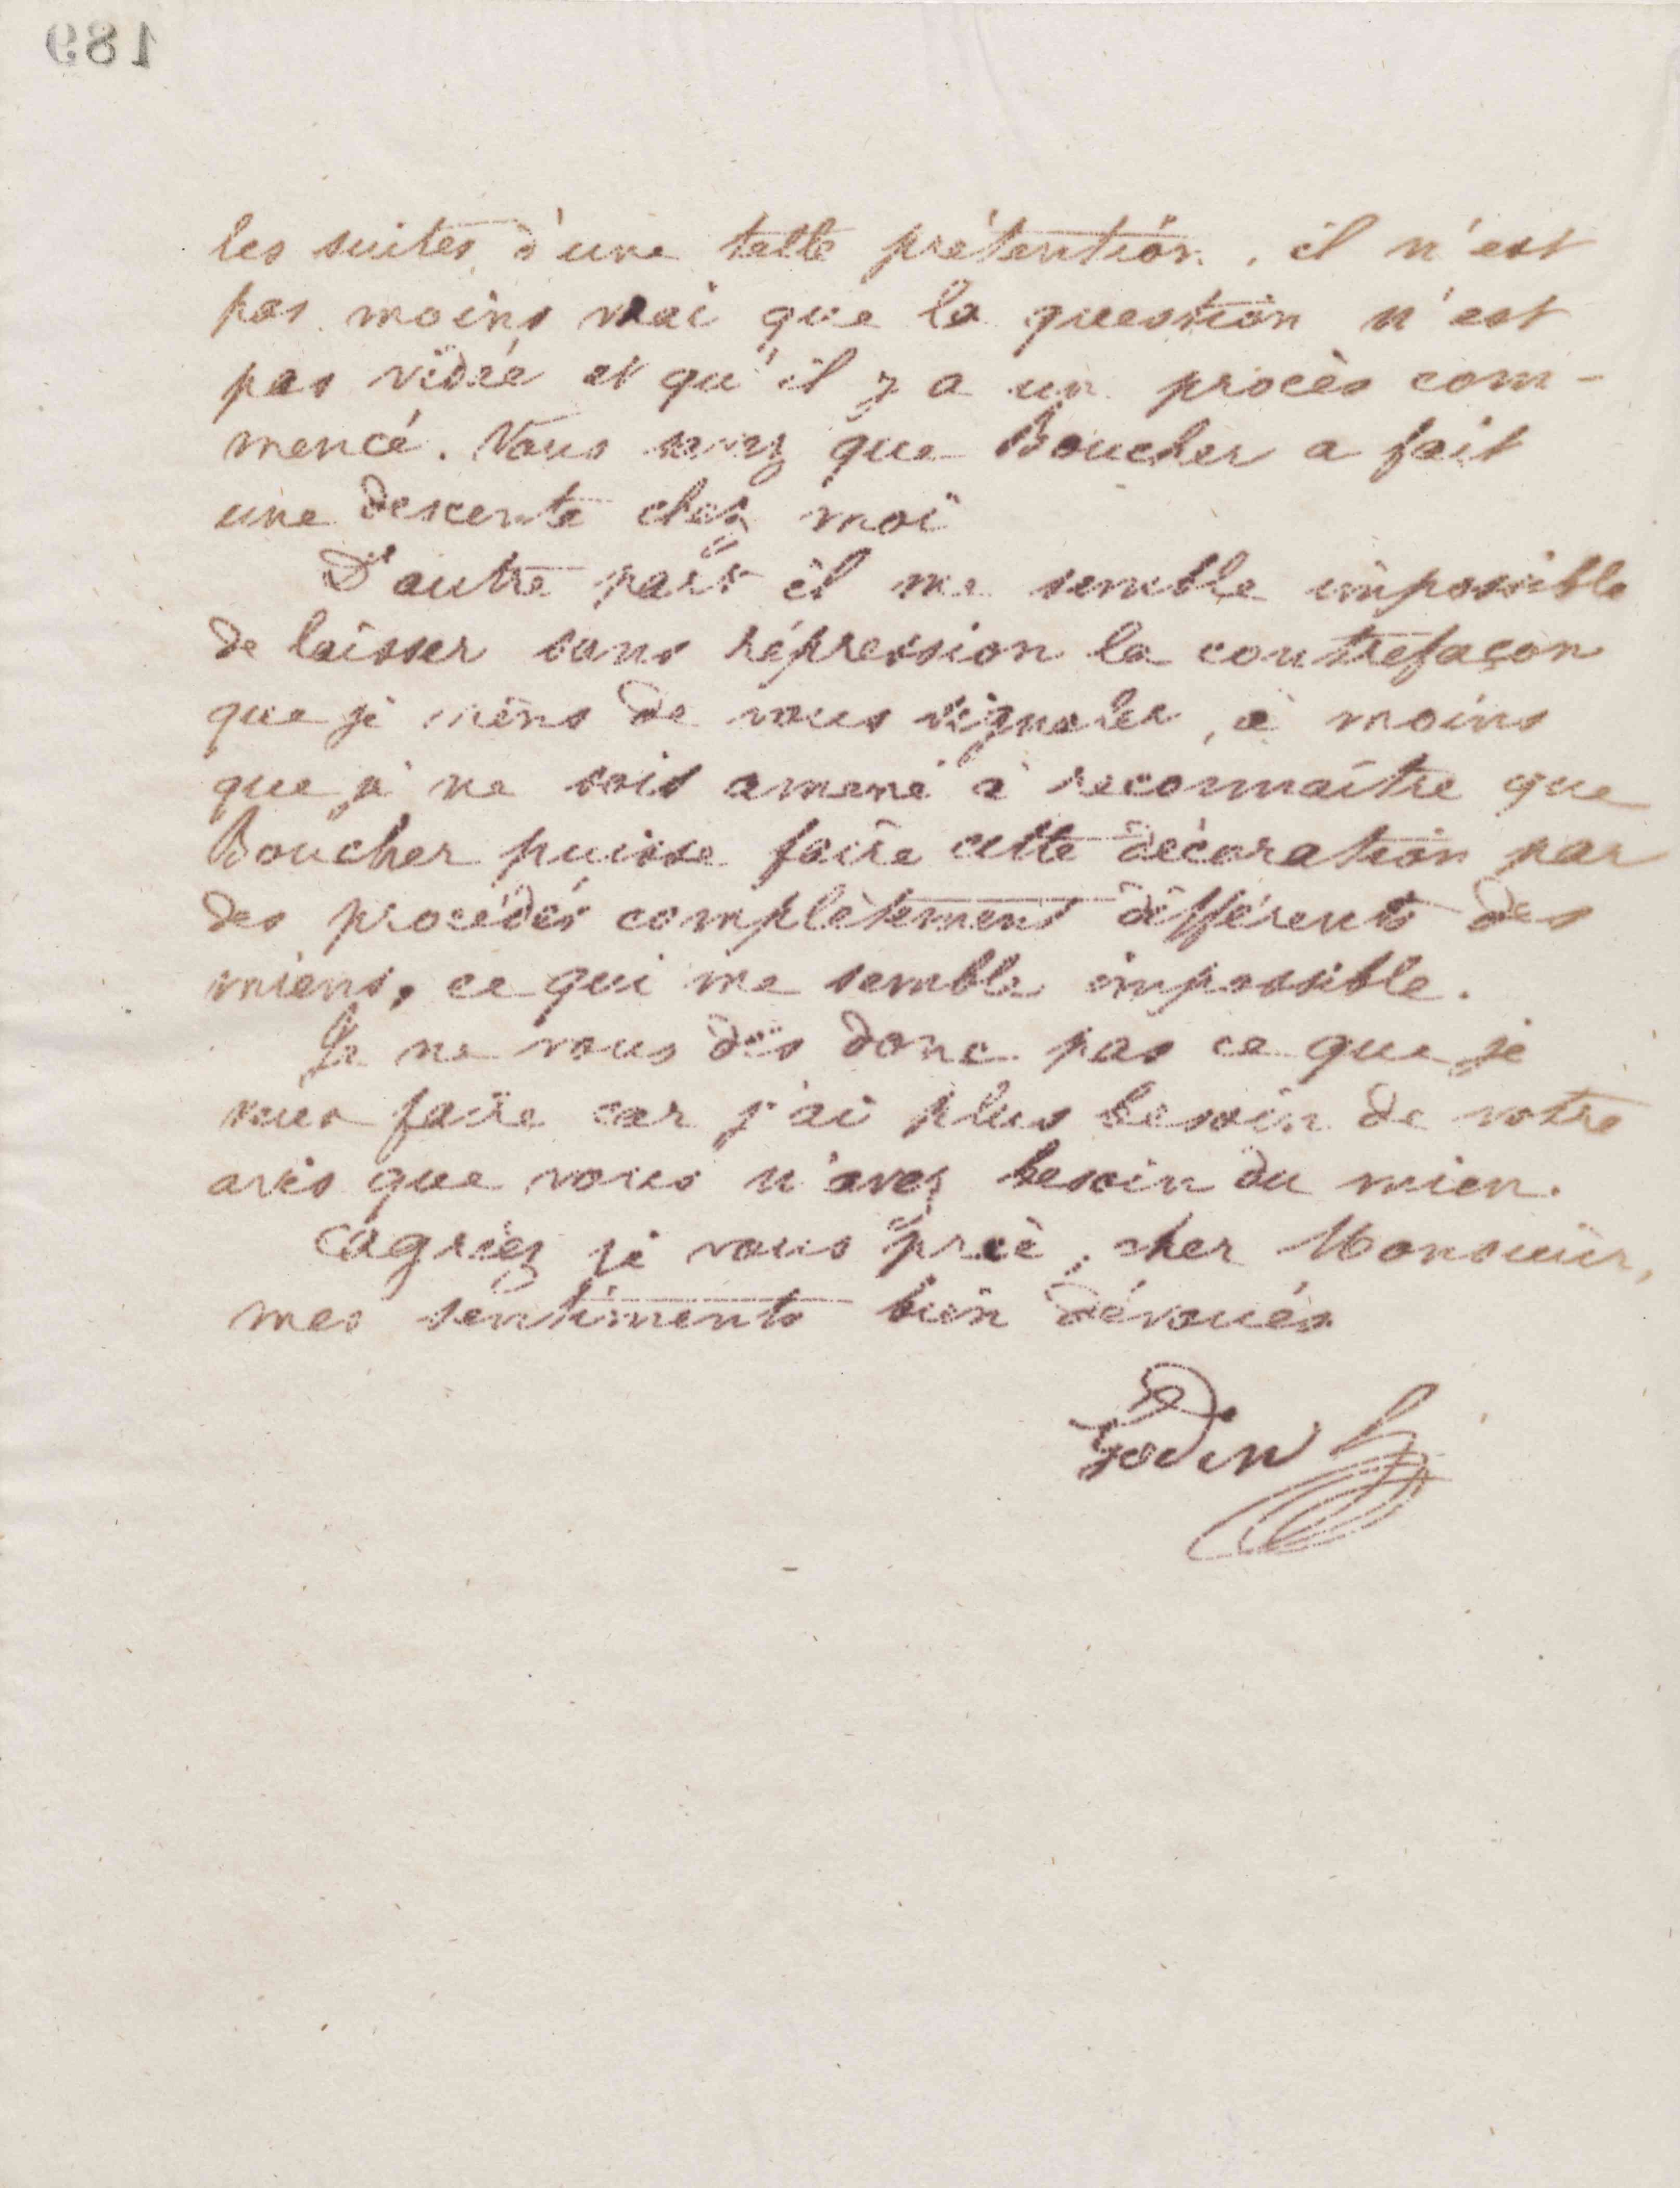 189
les suites d'une telle prétention, il n'est
pas moins vrai que la question n'est
pas vidée et qu'il y a un procès com-
mencé. Vous savez que Boucher a fait
une descente chez moi
D'autre part il me semble impossible
de laisser sans répression la contrefaçon
que je viens de vous signaler, à moins
que je ne sois amené à reconnaître que
Boucher puisse faire cette décoration par
des procédés complètement différents des
miens, ce qui me semble impossible.
Je ne vous dis donc pas ce que je
veux faire car j'ai plus besoin de votre
avis que vous n'avez besoin du mien.
Agriez je vous prie, cher Monsieur,
mes sentiments bien dévoués
Godin